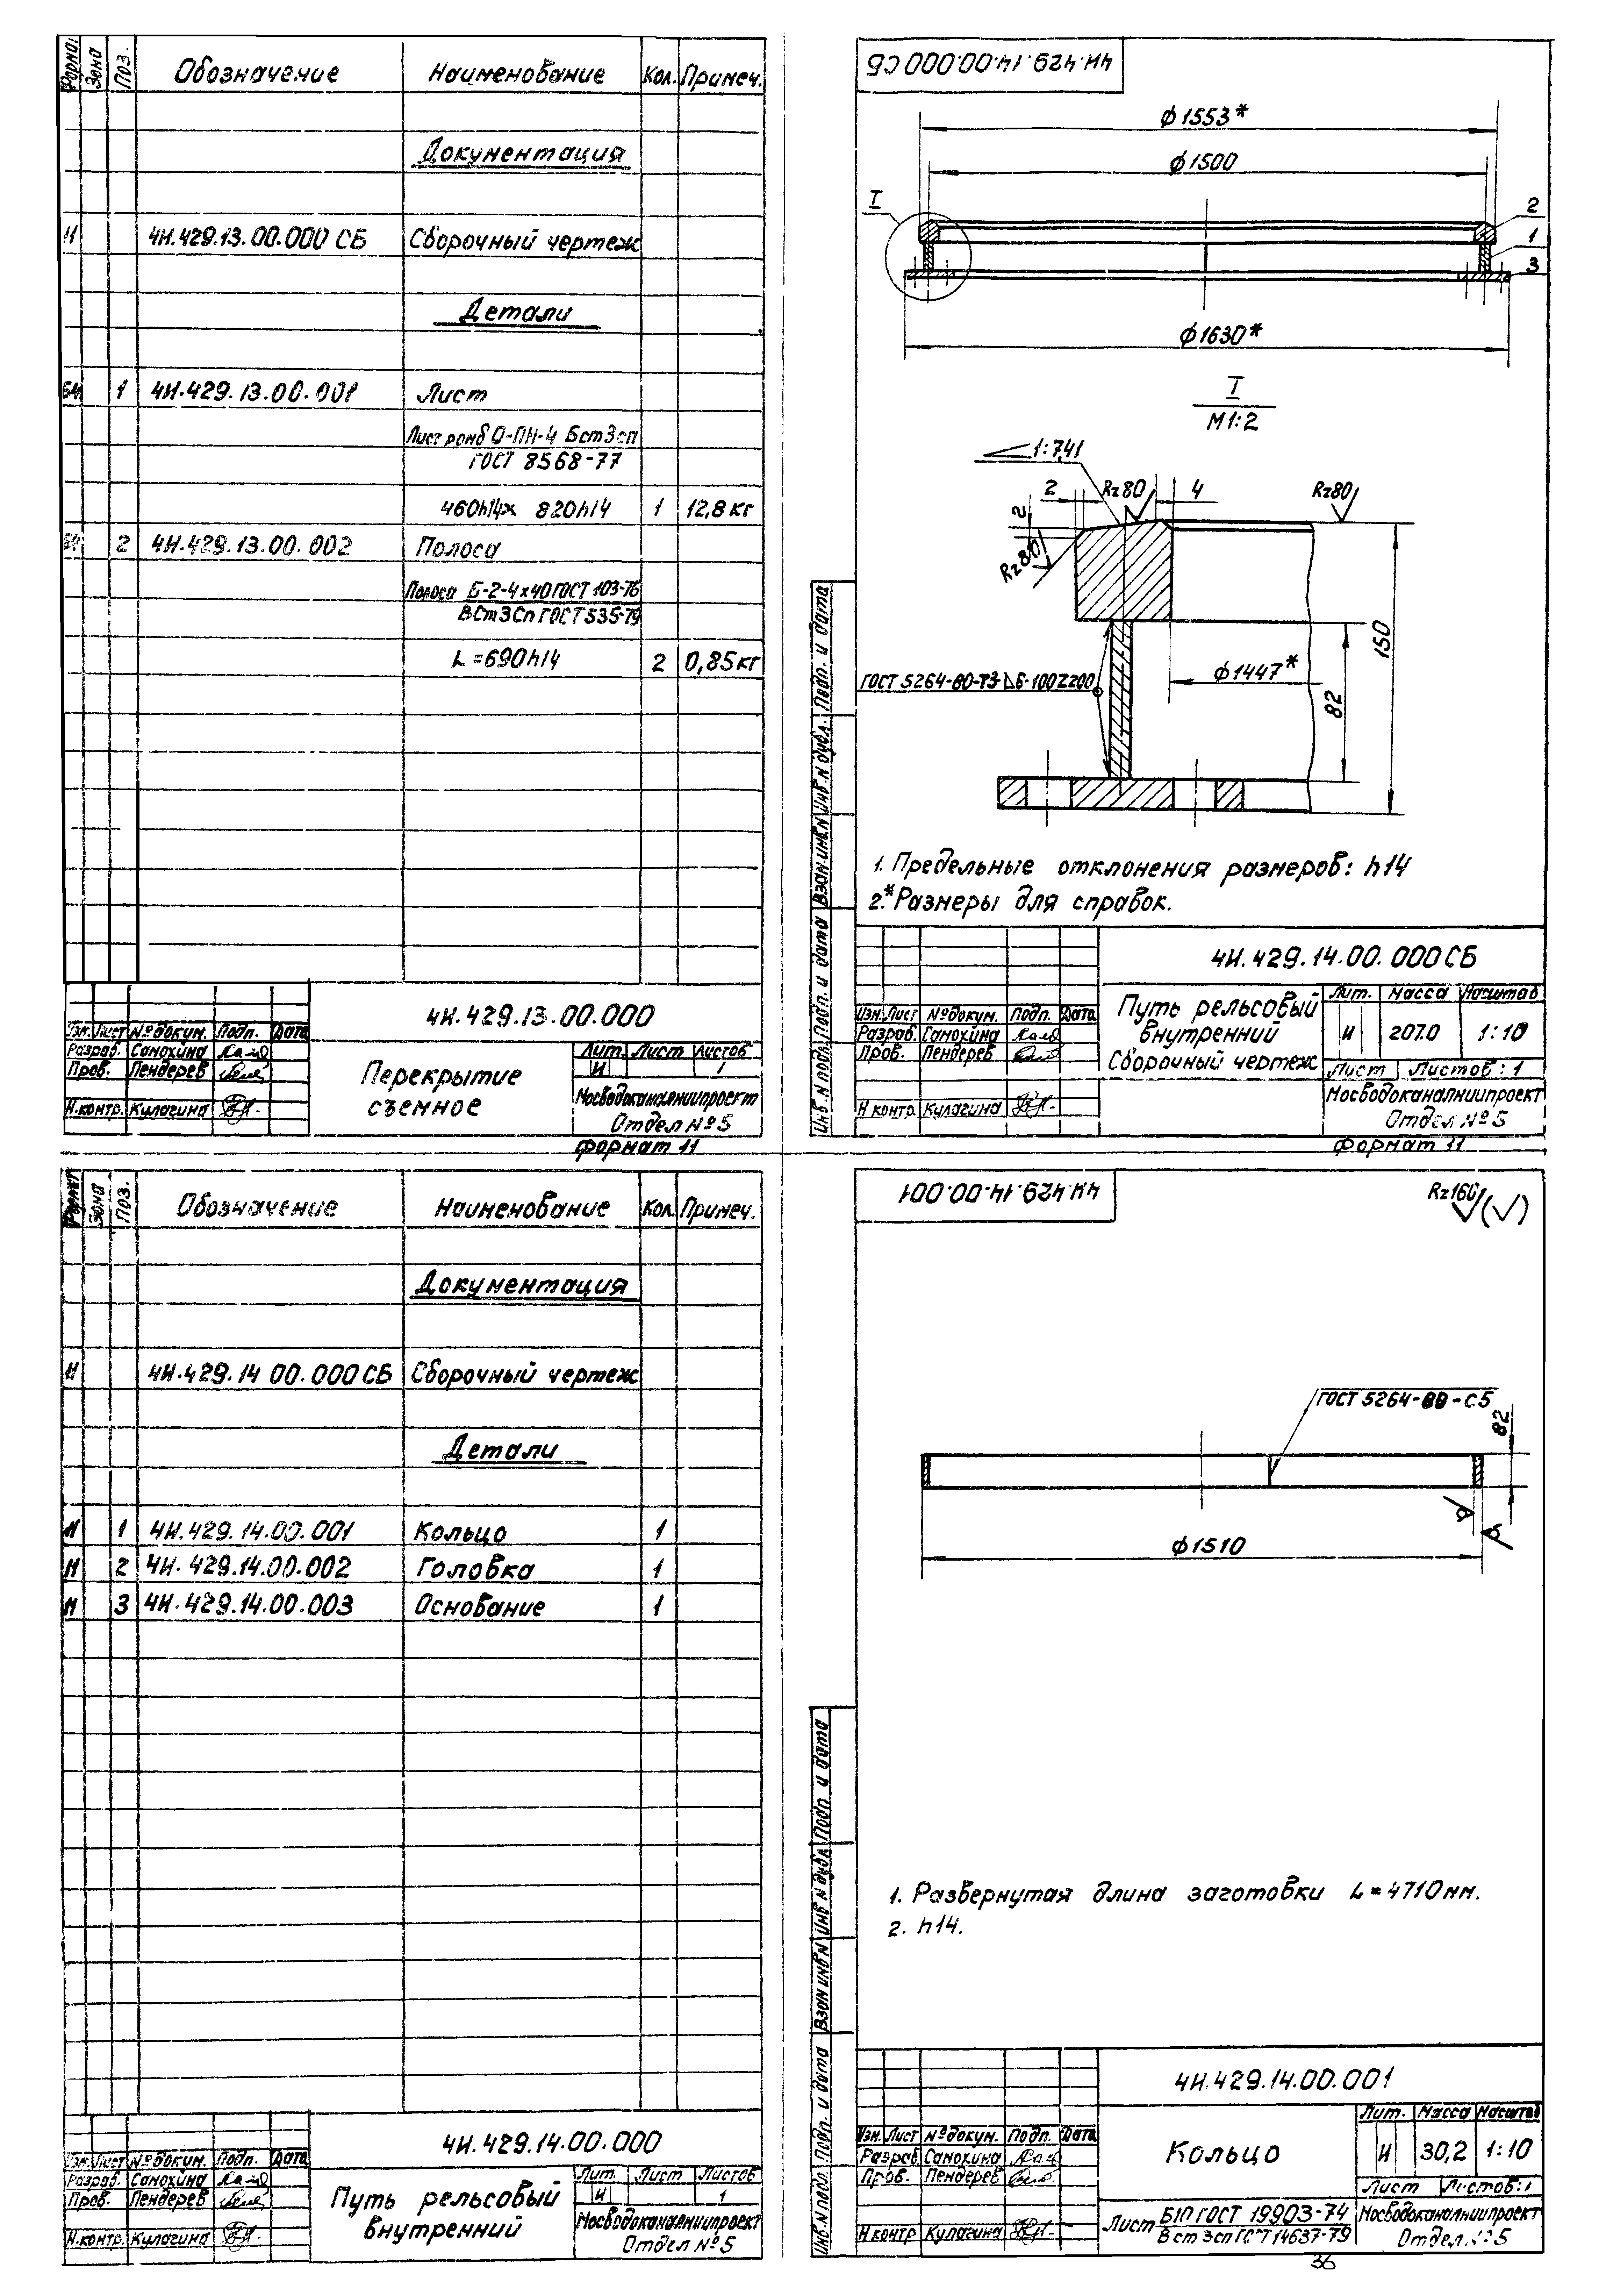 Формат Зона Поз. Обозначение Наименование Кол. Примеч.
Документация
11 4И.429.13.00.000 СБ Сборочный чертеж
Детали
БЧ 1 4И.429.13.00.001 Лист
Лист ромб О-ПН-4 БСт3сп
ГОСТ 8568-77
460h14х 820h14 1 12,8 кг
БЧ 2 4И.429.13.00.002 Полоса
Полоса Б-2-4х40 ГОСТ 103-76
ВСт3Сп ГОСТ 535-79
L=690h14 2 0,85кг
4И.429.13.00.000
Изм. Лист № докум. Подп. Дата
Разраб. Самохина
Пров. Пендерев
Н.контр. Кулагина
Перекрытие
съемное
Лит. Лист Листов
И 1
Мосводоканалниипроект
Отдел №5
Формат 11
4И.429.14.00.000 СБ
ϕ1553*
ϕ1500
I
2
1
3
ϕ1630*
I
М1:2
1:7,41
2 Rz80 4 Rz80
2
Rz80
150
ГОСТ 5264-80-Т3-⊿6-100Z200
ϕ1447*
82
1. Предельные отклонения размеров: h14
2.* Размеры для справок.
Инв.N подл. Подп. и дата Взам.инв.N Инв.N дубл. Подп. и дата
4И.429.14.00.000СБ
Изм. Лист № докум. Подп. Дата
Разраб. Самохина
Пров. Пендерев
Н контр. Кулагина
Путь рельсовый
внутренний
Сборочный чертеж
Лит. Масса Масштаб
И 207.0 1:10
Лист Листов: 1
Мосводоканалниипроект
Отдел №5
Формат 11
Формат Зона Поз. Обозначение Наименование Кол. Примеч.
Документация
11 4И.429.14 00.000 СБ Сборочный чертеж
Детали
11 1 4И.429.14.00.001 Кольцо 1
11 2 4И.429.14.00.002 Головка 1
11 3 4И.429.14.00.003 Основание 1
4И.429.14.00.000
Изм. Лист № докум. Подп. Дата
Разраб. Самохина
Пров. Пендерев
Н.контр. Кулагина
Путь рельсовый
внутренний
Лит. Лист Листов
И 1
Мосводоканалниипроект
Отдел №5
4И.429.14.00.001
Rz160 (√)
ГОСТ 5264-80-С5
82
ϕ1510
1. Развернутая длина заготовки L=4710мм.
2. h14.
Инв.N подл. Подп. и дата Взам инв.N Инв N дубл. Подп и дата
4И.429.14.00.001
Изм. Лист № докум. Подп. Дата
Разраб Самохина
Пров. Пендерев
Н контр Кулагина
Кольцо
Лит. Масса Масштаб
И 30,2 1:10
Лист Листов: 1
Лист Б10 ГОСТ 19903-74
ВСт3сп ГОСТ 14637-79
Мосводоканалниипроект
Отдел №5
36